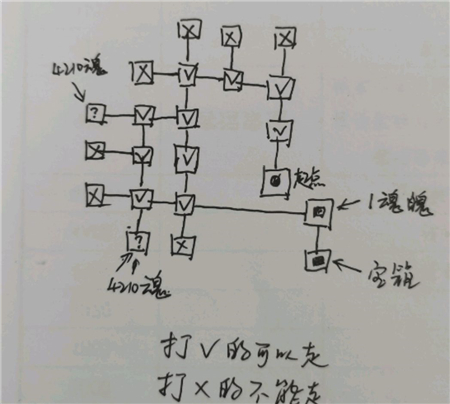 X X X
X V V V
4210魂
? V V V
X V V
起点
X V V
1魂魄
? X
宝箱
4210魂
打V的可以走
打X的不能走